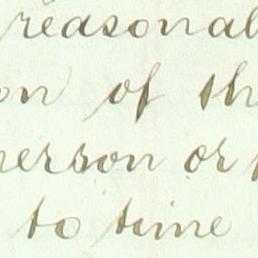 reasonal
on of th
erson or
to time